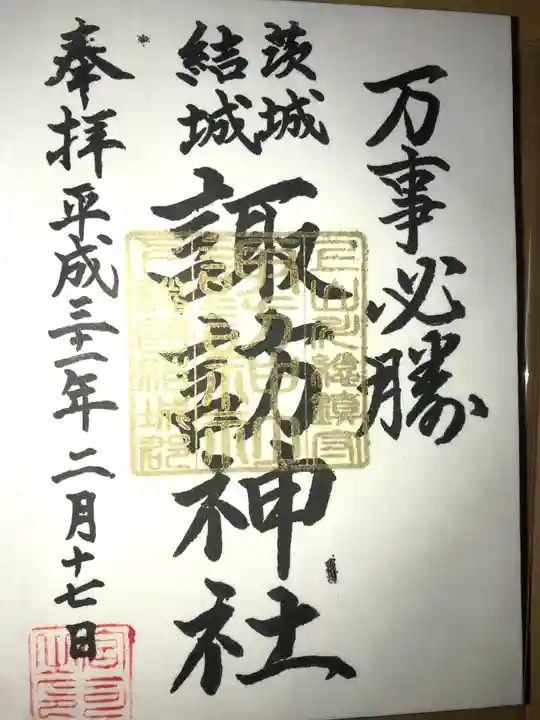 万事必勝
茨城
結城
諏訪神社
奉拝 平成三十一年 二月十七日